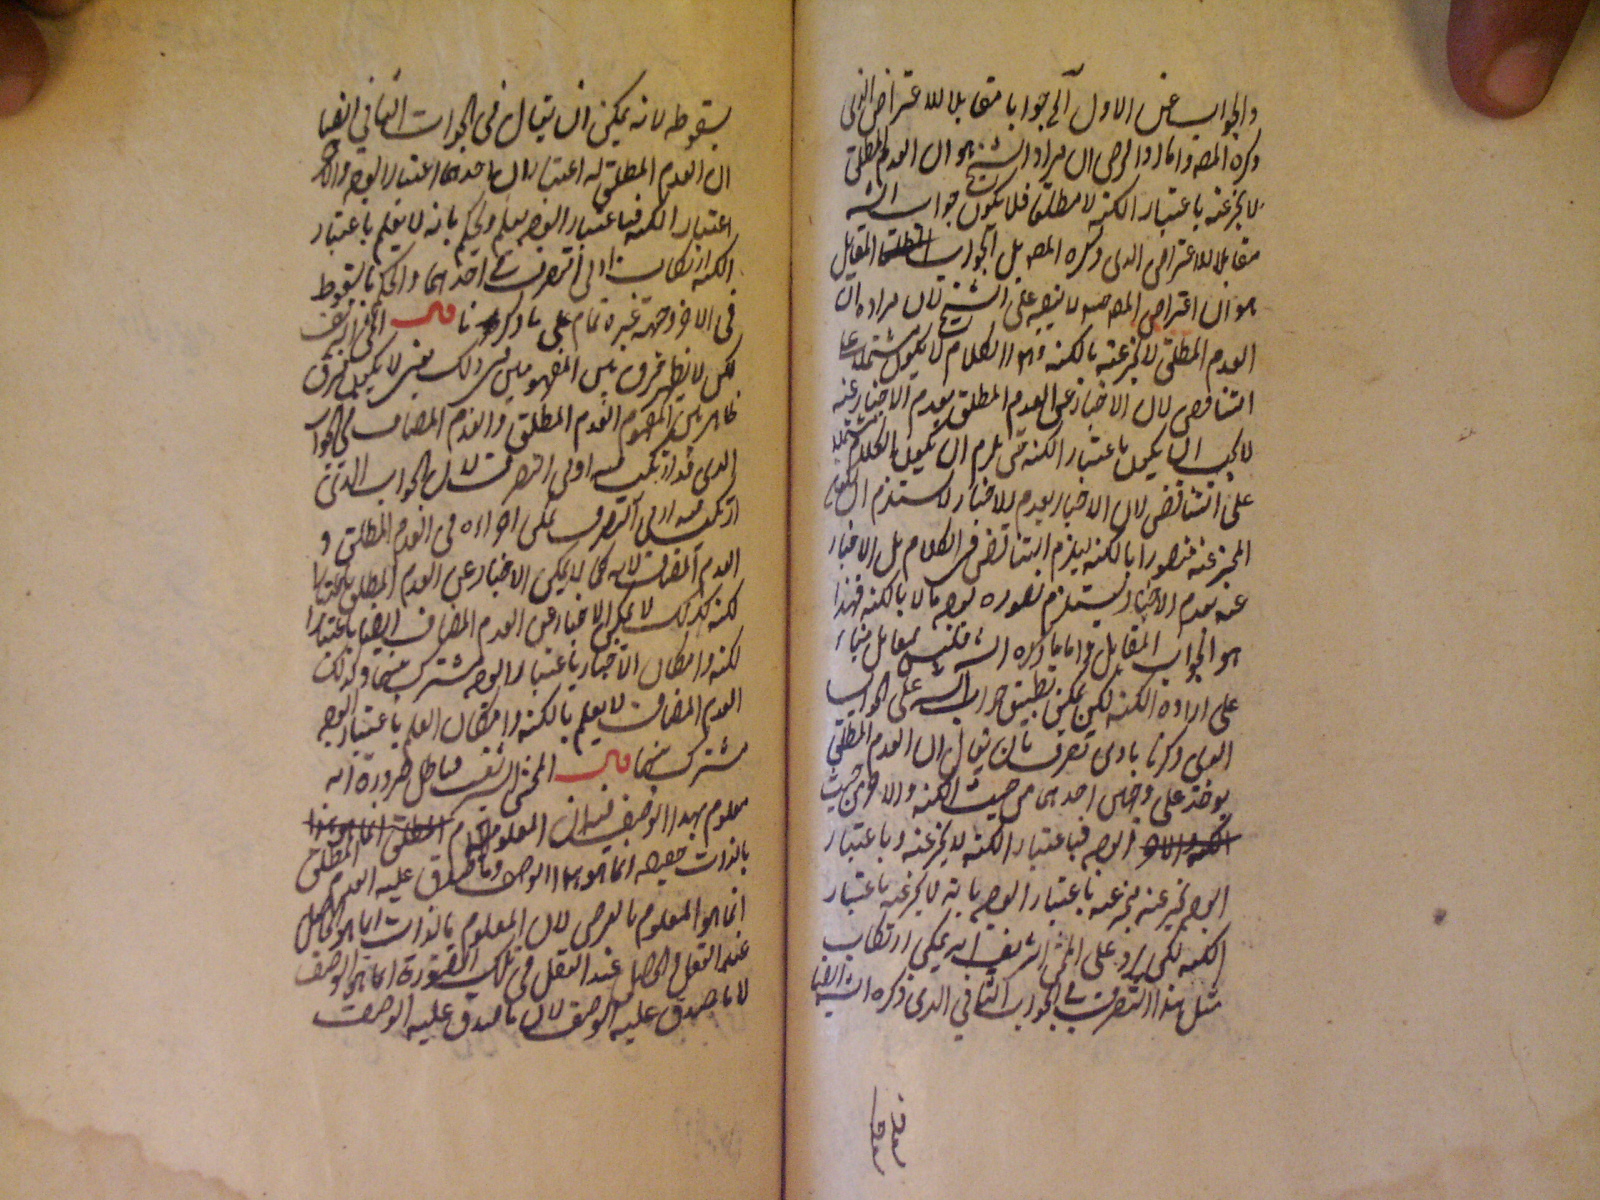 والجواب عن الاول آلى جوابا مقابلا للاعتراض الذى
ذكره المصـ واما اذا فرض ان مراد الشيخ هو ان العدم المطلق
لا يخبر عنه باعتبار الكنه لا مطلقا فلا يكون جواب الشـ
مقابلا للاعتراض الذى ذكره المصـ بل الجواب المقابل
هو ان اعتراض المصـ لا يتوجه على الشيخ لان مراده ان
العدم المطلق لا يخبر عنه بالكنه وهذا الكلام لا يكون مشتملا على
التناقض لان الاخبار عن العدم المطلق بعدم الاخبار عنه
لا يجب ان يكون باعتبار الكنه حتى يلزم ان يكون الكلام مشتملا
على التناقض لان الاخبار بعدم الاخبار لا يستلزم ان يكون
المخبر عنه متصورا بالكنه ليلزم التناقض فى الكلام بل الاخبار
عنه بعدم الاخبار يستلزم تصوره بوجه ما لا بالكنه فهذا
هو الجواب المقابل واما ما ذكره الشـ فليس بمقابل بناء
على ارادة الكنه لكن يمكن تطبيق جواب الشـ على الجواب
الذى ذكرنا بادنى تصرف بان يقال ان العدم المطلق
يوخذ على وجهين احدهما من حيث الكنه والاخر من حيث
الوجه فباعتبار الكنه لا يخبر عنه وباعتبار
الوجه يخبر عنه فيخبر عنه باعتبار الوجه بانه لا يخبر عنه باعتبار
الكنه لكن يرد على المحشى الشريف انه يمكن ارتكاب
مثل هذا التصرف فى الجواب الثانى الذى ذكره الشـ ايضا
بسقوطه لانه يمكن ان يقال فى الجواب الثانى ايضا
ان العدم المطلق له اعتباران احدهما اعتبار الوجه والاخر
اعتبار الكنه فباعتبار الوجه يعلم ويحكم بانه لا يعلم باعتبار
الكنه فارتكاب ادنى التصرف فى احدهما والحكم بالسقوط
فى الاخر وجهه غير تمام على ما ذكرنا قال المحشى الشريف
لكن لا يظهر فرق بين المفهومين فى ذلك يعنى لا يكون فرق
ظاهر بين مفهوم العدم المطلق والعدم المضاف فى الجواب
الذى قد ارتكب فيه ادنى التصرف لان الجواب الذى
ارتكب فيه ادنى التصرف يمكن اجراءه فى العدم المطلق و
العدم المضاف لانه كما لا يمكن الاخبار عن العدم المطلق باعتبار
لكنه كذلك لا يمكن الاخبار عن العدم المضاف ايضا باعتبار
لكنه وامكان الاخبار باعتبار الوجه مشترك بينهما وكذلك
العدم المضاف لا يعلم بالكنه وامكان العلم باعتبار الوجه
مشترك بينهما قال المحشى الشريف فباطل ضرورة انه
معلوم بهذا الوصف فان المعلوم
بالذات حقيقة انما هو هذا الوصف وما صدق عليه العدم المطلق
انما هو المعلوم بالعرض لان المعلوم بالذات انما هو الحاصل
عند العقل والحاصل عند العقل فى تلك الصورة انما هو الوصف
لا ما صدق عليه الوصف لان ما صدق عليه الوصف